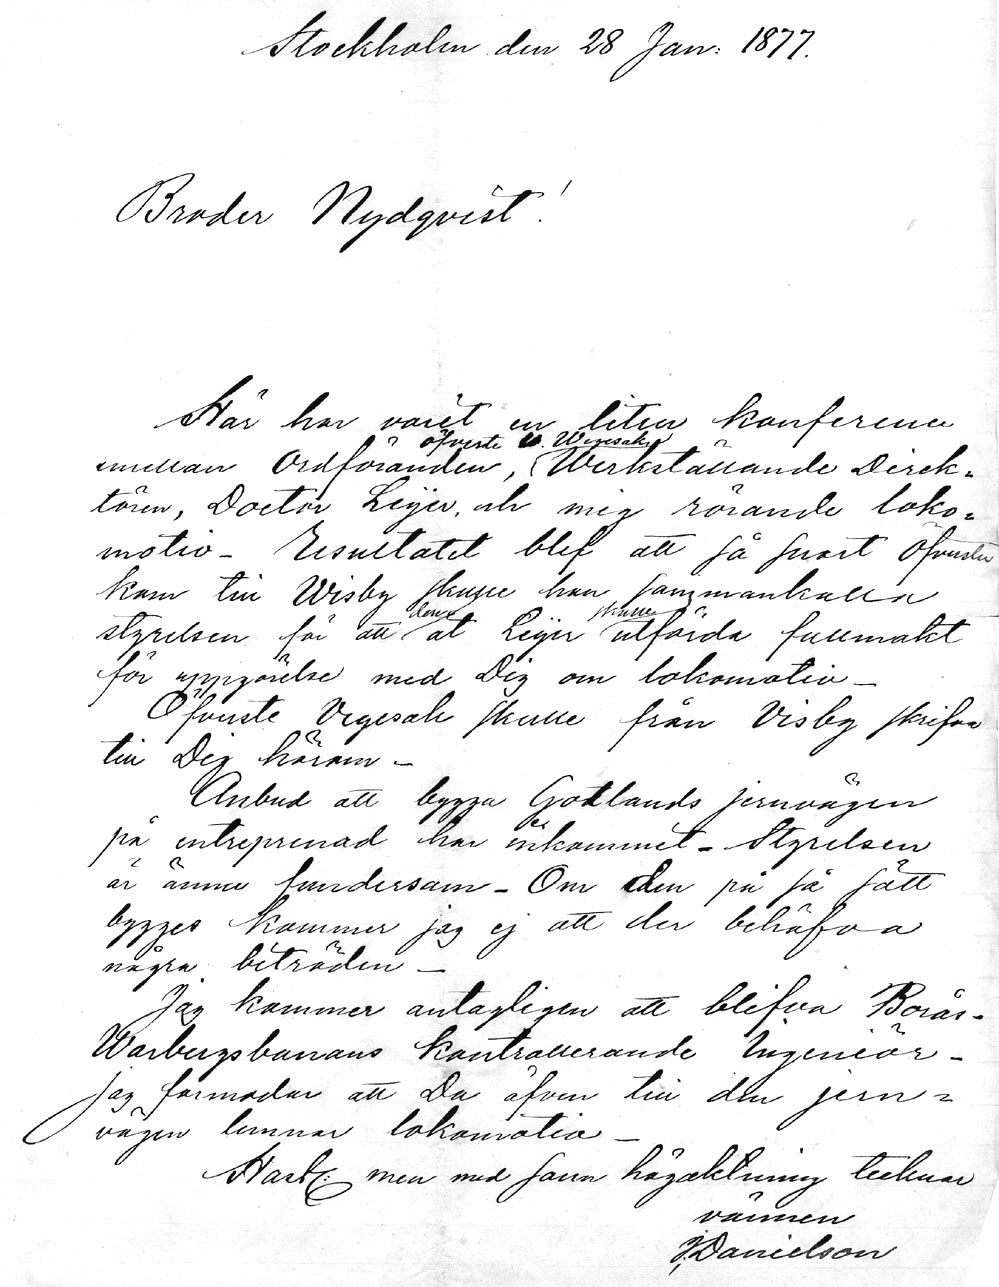 Stockholm den 28 Jan: 1877.
Broder Nydqvist!
Här har varit en liten konferens
öfverste v. Wegesack
mellan Ordföranden, Werkställande Direk=
tören, Doctor Leijer, och mig rörande loko=
motiv – Resultatet blef att så snart Öfversten
kom till Wisby skulle han sammankalla
styrelsen för att denna skulle
åt Leijer utfärda fullmakt
för uppgörelse med Dig om lokomotiv –
Öfverste Vegesack skulle från Visby skrifva
till Dig härom –
Anbud att bygga Gotlands jernvägen
på entreprenad har inkommit – Styrelsen
är ännu fundersam – Om den på så sätt
bygges kommer jag ej att der behöfva
några biträden –
Jag kommer antagligen att blifva Borås-
Warbergsbanans kontrollerande Ingeniör –
jag förmodar att Du äfven till den jern=
vägen lemnar lokomotiv –
Hast. men med sann högaktning tecknar
vännen
J. Danielson